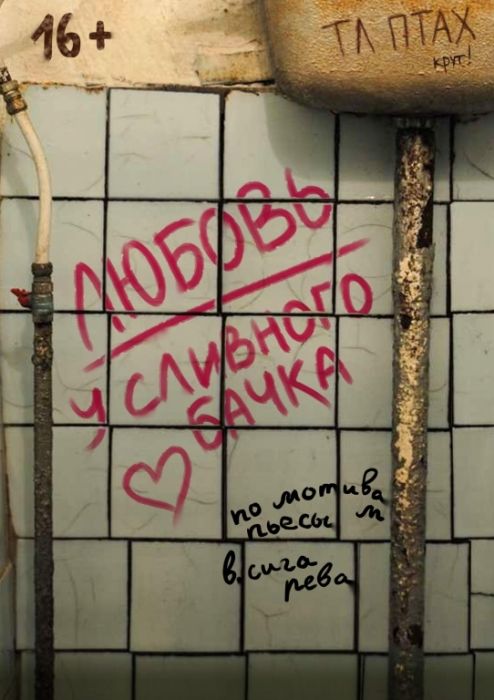 16+
ТЛ ПТАХ
круг!
ЛЮБОВЬ
У СЛИВНОГО
БАЧКА
по мотива
пьесы м
в. сига
рева